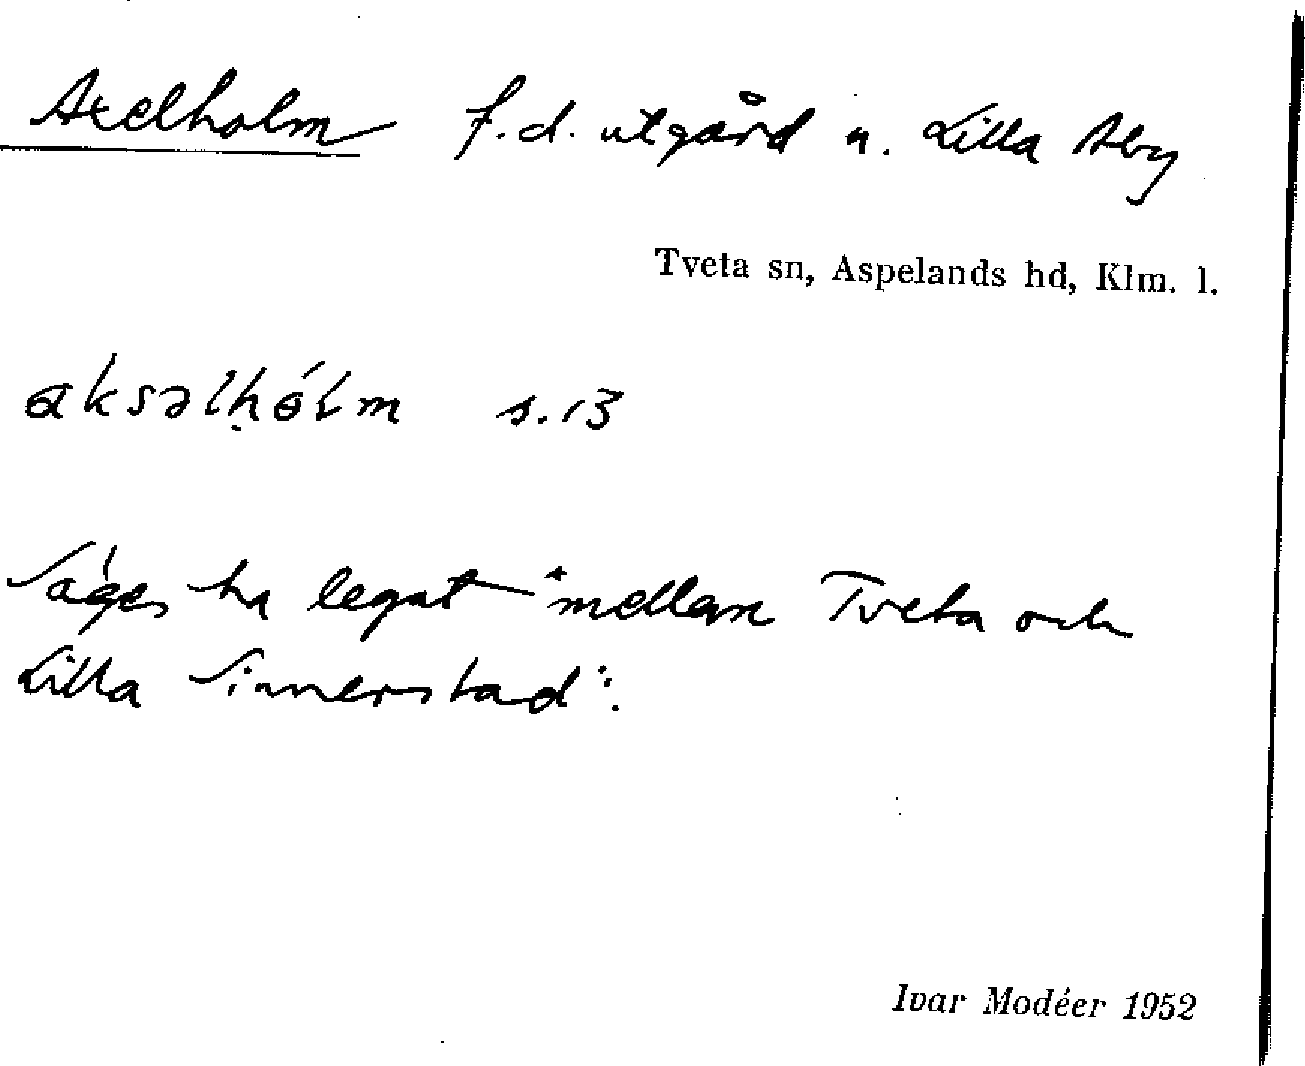 Axelholm f.d. utgård u. Lilla Aby
Tveta sn, Aspelands hd, Klm. l.
aksəlḥólm s. 13
Säges ha legat "mellan Tveta och
Lilla Sinnerstad".
Ivar Modéer 1952